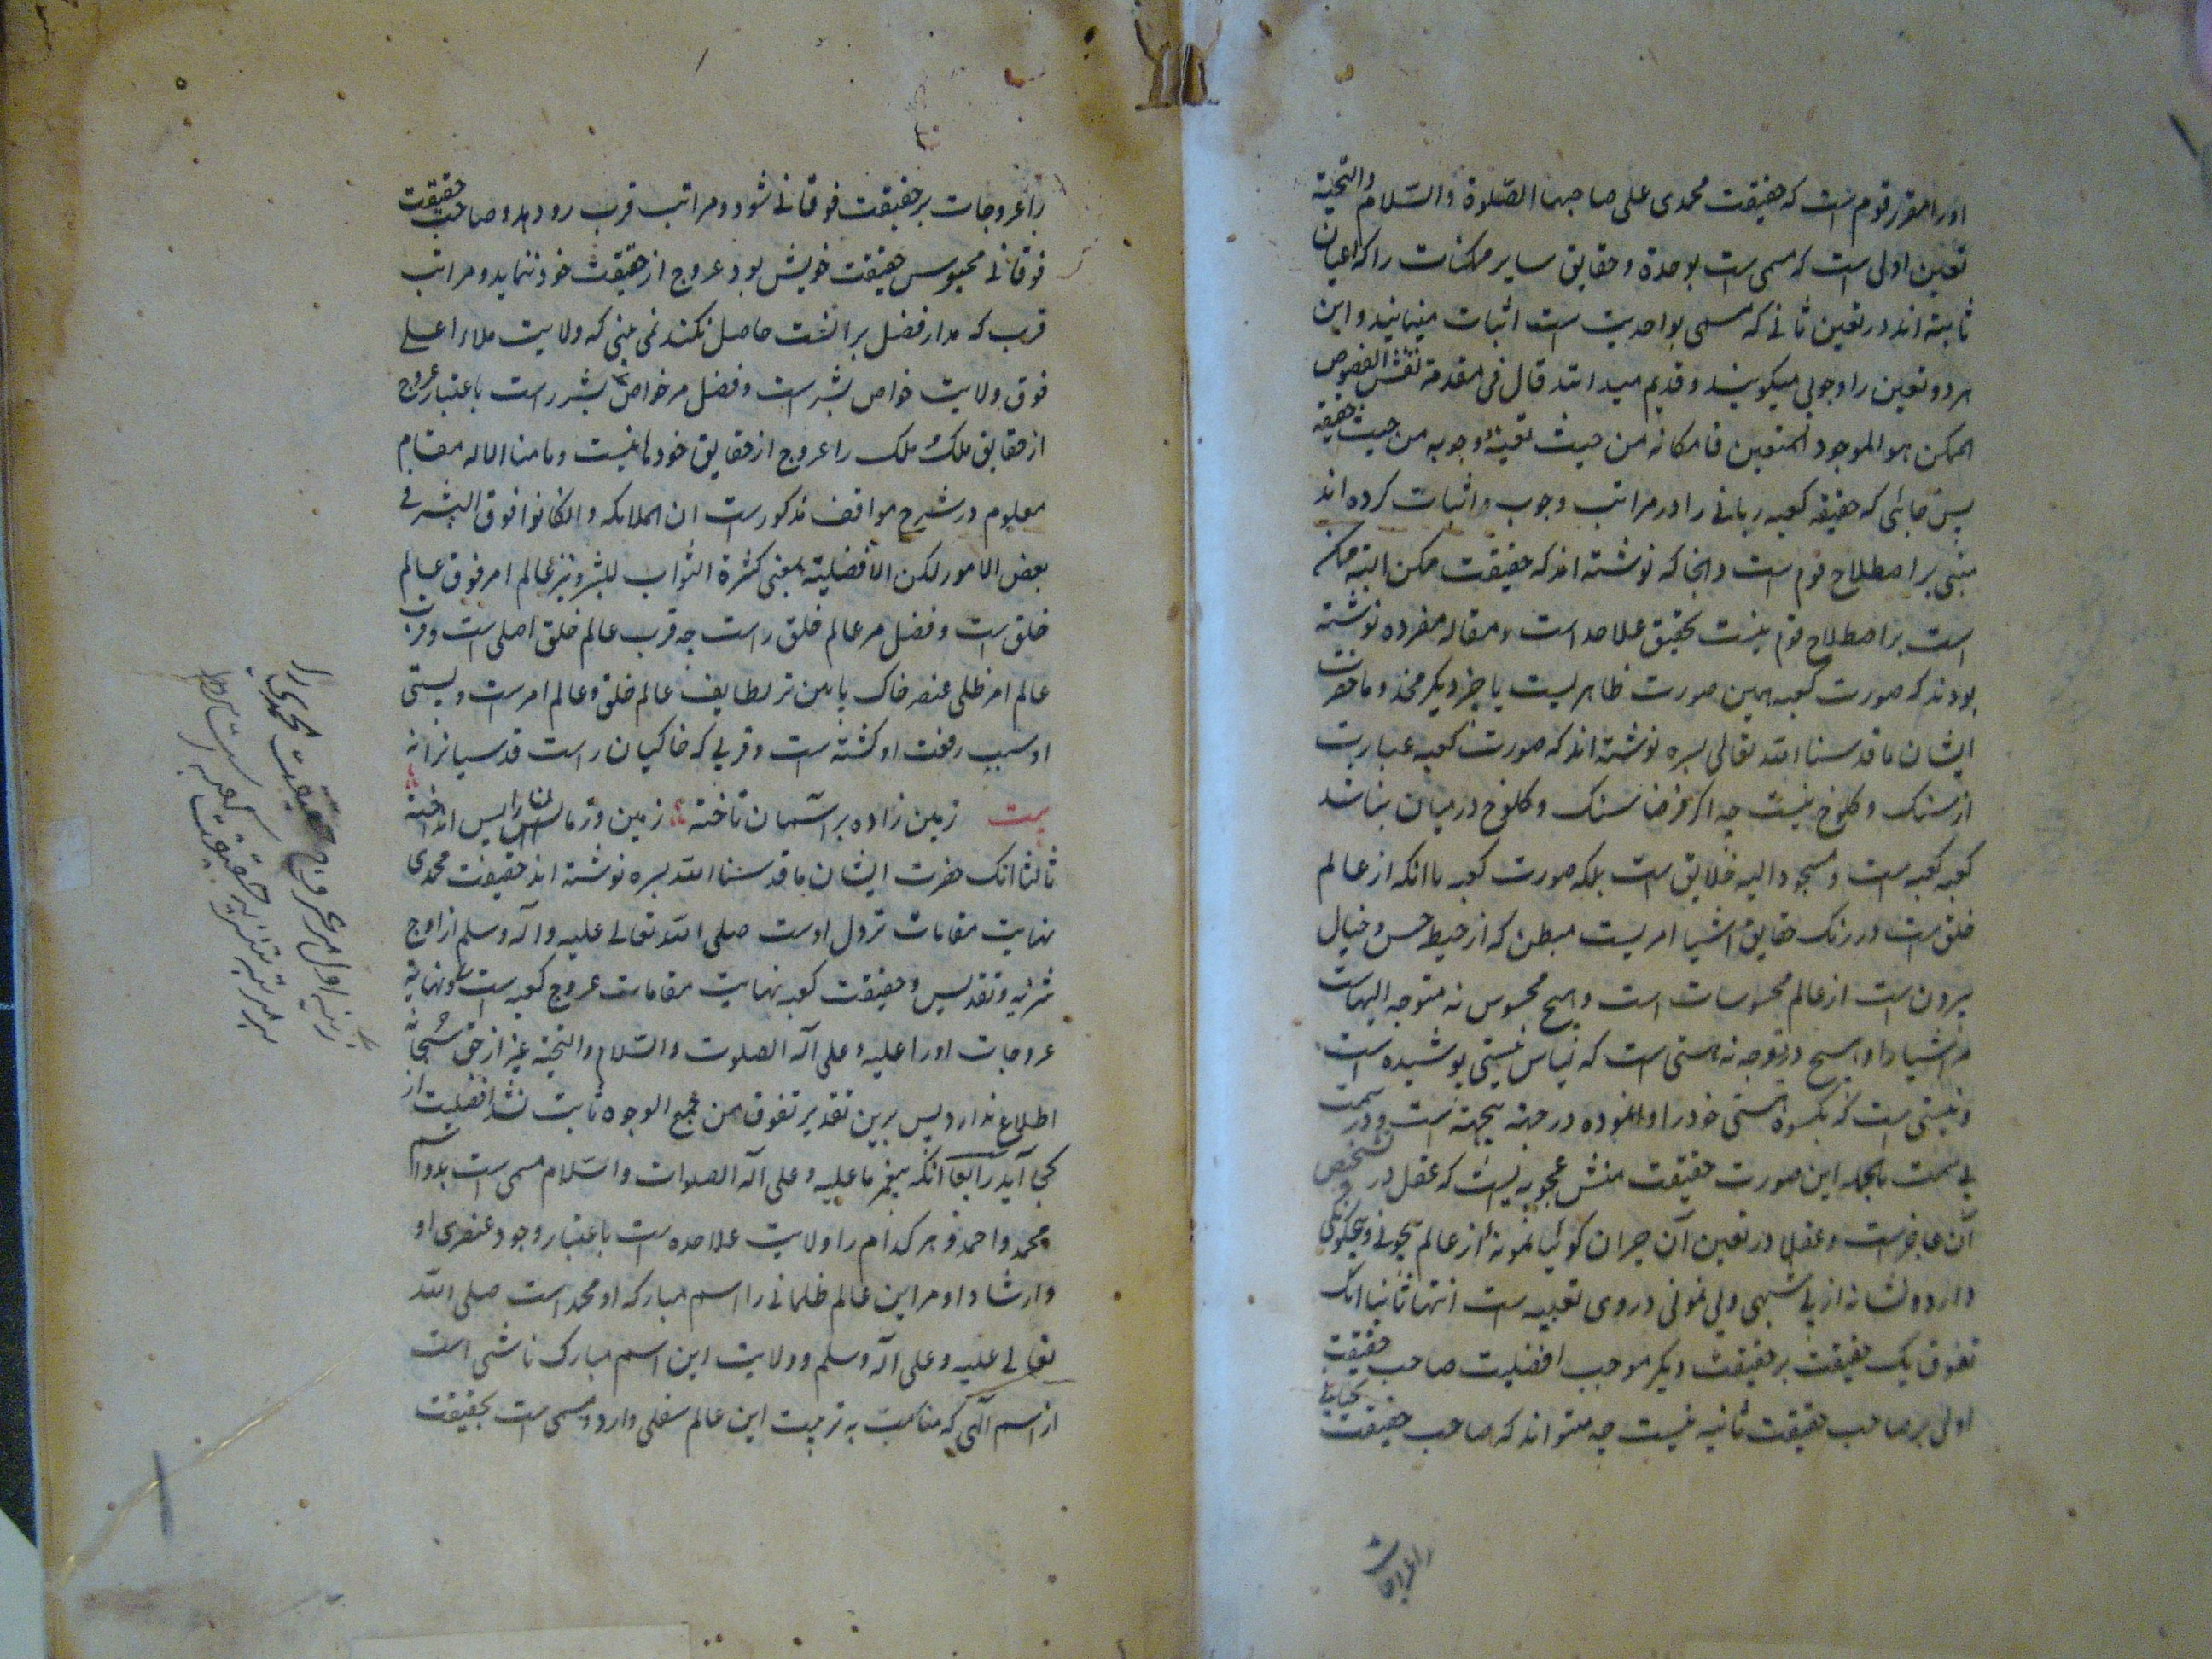 اورا مقرر قوم است که حقیقت محمدی علی صاحبها الصلوة والسلام والتحیة
تعین اولی است که مسمی است بوحدة و حقایق سایر ممکنات را که اعیان
ثابته اند در تعین ثانی که مسمی بواحدیت است اثبات مینمایند و این
هر دو تعین را وجوبی میگویند و قدیم میدانند قال فی مقدمة نقش الفصوص
الممکن هو الموجود المتعین فامکانه من حیث تعینه و وجوبه من حیث حقیقة
پس جائی که حقیقة کعبه ربانی را در مراتب وجوب و اثبات کرده اند
مبنی بر اصطلاح قوم است و انجا که نوشته اند که حقیقت ممکن البته ممکن
است بر اصطلاح قوم نیست تحقیق علاحد است و مقاله مفرده نوشته
بودند که صورت کعبه همین صورت ظاهریست یا چیز دیگر مخدوما حضرت
ایشان ما قدسنا الله تعالی بسره نوشته اند که صورت کعبه عبارت
از سنک و کلوخ نیست چه اکر فرضا سنک و کلوخ در میان نباشد
کعبه کعبه است و مسجود الیه خلایق است بلکه صورت کعبه با انکه از عالم
خلق است در رنک حقایق اشیا امریست مبطن که از حیطه حس و خیال
بیرون است از عالم محسوسات است و هیچ محسوس نه متوجه الیهاست
مر اشیا را و هیچ در توجه نه هستی است که لباس نیستی پوشیده است
و نیستی است که بکسوة هستی خود را وانموده در جهة بیجهة است و در سمت
بی سمت بالجمله این صورت حقیقت منش عجوبه ایست که عقل در تشخیص
آن عاجز است و عقلا در تعین آن حیران گوئیا نمونه از عالم بیچونی و بیچگونگی
دارد و نشانه از بی شبهی و بی نمونی در وی تعبیه است انتها ثانیا انک
تفوق یک حقیقت بر حقیقت دیکر موجب افضلیت صاحب حقیقت
اولی بر صاحب حقیقت ثانیه نیست چه میتواند که صاحب حقیقت تحتانی
را عروجات
را عروجات بر حقیقت فوقانی شود و مراتب قرب رو دهد و صاحب حقیقت
فوقانی محبوس حقیقت خویش بود عروج از حقیقت خود ننماید و مراتب
قرب که مدار فضل بر انست حاصل نکند نمی بینی که ولایت ملاء اعلے
فوق ولایت خواص بشر است و فضل مر خواص بشر راست باعتبار عروج
از حقایق ملک ملک را عروج از حقایق خودها نیست وما منا الا له مقام
معلوم در شرح مواقف مذکور است ان الملایکه و ان کانوا فوق البشر فی
بعض الامور لکن الافضلیة بمعنی کثرة الثواب للبشر و نیز عالم امر فوق عالم
خلق است و فضل مر عالم خلق راست چه قرب عالم خلق اصلی است و قرب
عالم امر ظلی عنصر خاک پایین تر لطایف عالم خلق و عالم امر است و پستی
او سبب رفعت او کشته است و قربی که خاکیان راست قدسیانرا نه
بیت زمین زاده بر آسمان تاخته زمین و زمان را پس انداخته
ثالثا انک حضرت ایشان ما قدسنا الله بسره نوشته اند حقیقت محمدی
نهایت مقامات نزول اوست صلی الله تعالی علیه وآله وسلم از اوج
تنزیه و تقدیس و حقیقت کعبه نهایت مقامات عروج کعبه است و نهایة
عروجات اورا علیه وعلی آله الصلوت والسلام والتحیة غیر از حق سبحانه
اطلاع ندارد پس برین تقدیر تفوق من جمیع الوجوه ثابت نشد افضلیت از
کجا آید رابعا انکه پیغمبر ما علیه وعلی آله الصلوات والسلام مسمی است بدو اسم
محمد و احمد و هر کدام را ولایت علاحده است باعتبار وجود عنصری او
و ارشاد او مر این عالم ظلمانی را اسم مبارکه او محمد است صلی الله
تعالی علیه وعلی آله وسلم و ولایت این اسم مبارک ناشی است
از اسم آلهی که مناسبت به تربیت این عالم سفلی دارد و مسمی است بحقیقت
حقیقت محمدی را
حقیقت کعبه است